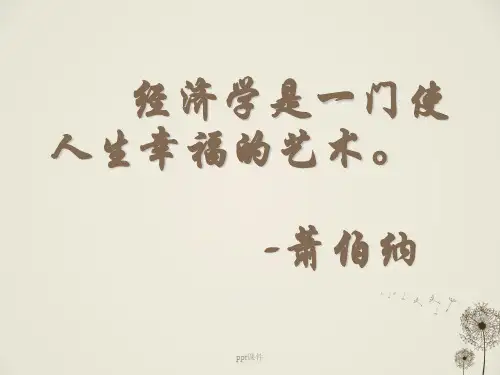 经济学是一门使
人生幸福的艺术。
-萧伯纳
ppt课件